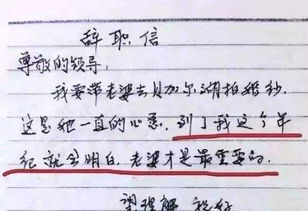 辞职信
尊敬的领导，
我要带老婆去贝加尔湖拍婚纱，
这是她一直的心愿，到了我这个年
纪就会明白，老婆才是最重要的。